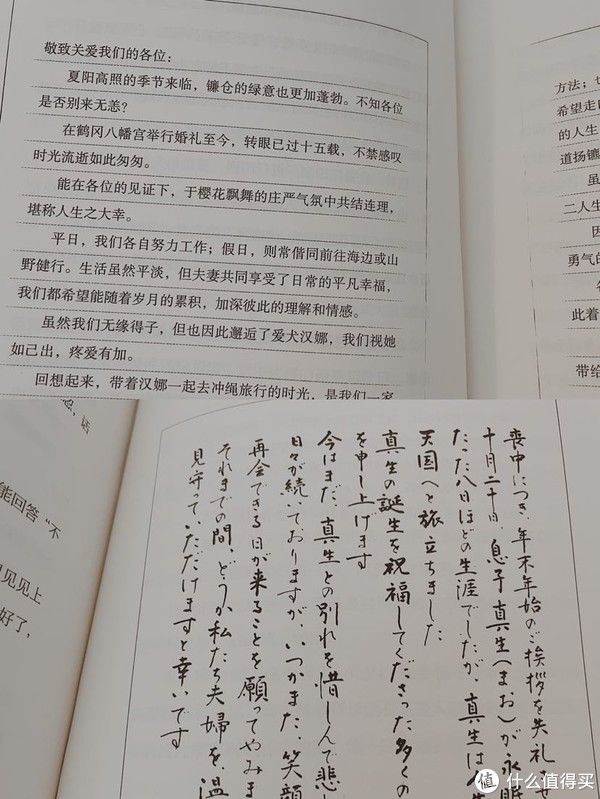 敬致关爱我们的各位：
夏阳高照的季节来临，镰仓的绿意也更加蓬勃。不知各位
是否别来无恙？
在鹤冈八幡宫举行婚礼至今，转眼已过十五载，不禁感叹
时光流逝如此匆匆。
能在各位的见证下，于樱花飘舞的庄严气氛中共结连理，
堪称人生之大幸。
平日，我们各自努力工作；假日，则常偕同前往海边或山
野健行。生活虽然平淡，但夫妻共同享受了日常的平凡幸福，
我们都希望能随着岁月的累积，加深彼此的理解和情感。
虽然我们无缘得子，但也因此邂逅了爱犬汉娜，我们视她
如己出，疼爱有加。
回想起来，带着汉娜一起去冲绳旅行的时光，是我们一家
方法；也
希望走
的人生
道扬镳
虽
二人生
因
勇气的
此着
带给
能回答“不
见见上
好了，
喪中につき、年末年始のご挨拶を失礼さ
十月二十日、息子真生（まお）が永眠
たった八日ほどの生涯でしたが、真生は
天国へと旅立ちました
真生の誕生を祝福してくださった多くの
を申し上げます
今はまだ、真生との別れを惜しんで悲し
日々が続いておりますが、いつかまた、笑顔
再会できる日が来ることを願ってやみま
それまでの間、どうか私たち夫婦を、温
見守っていただけますと幸いです
值 什么值得买